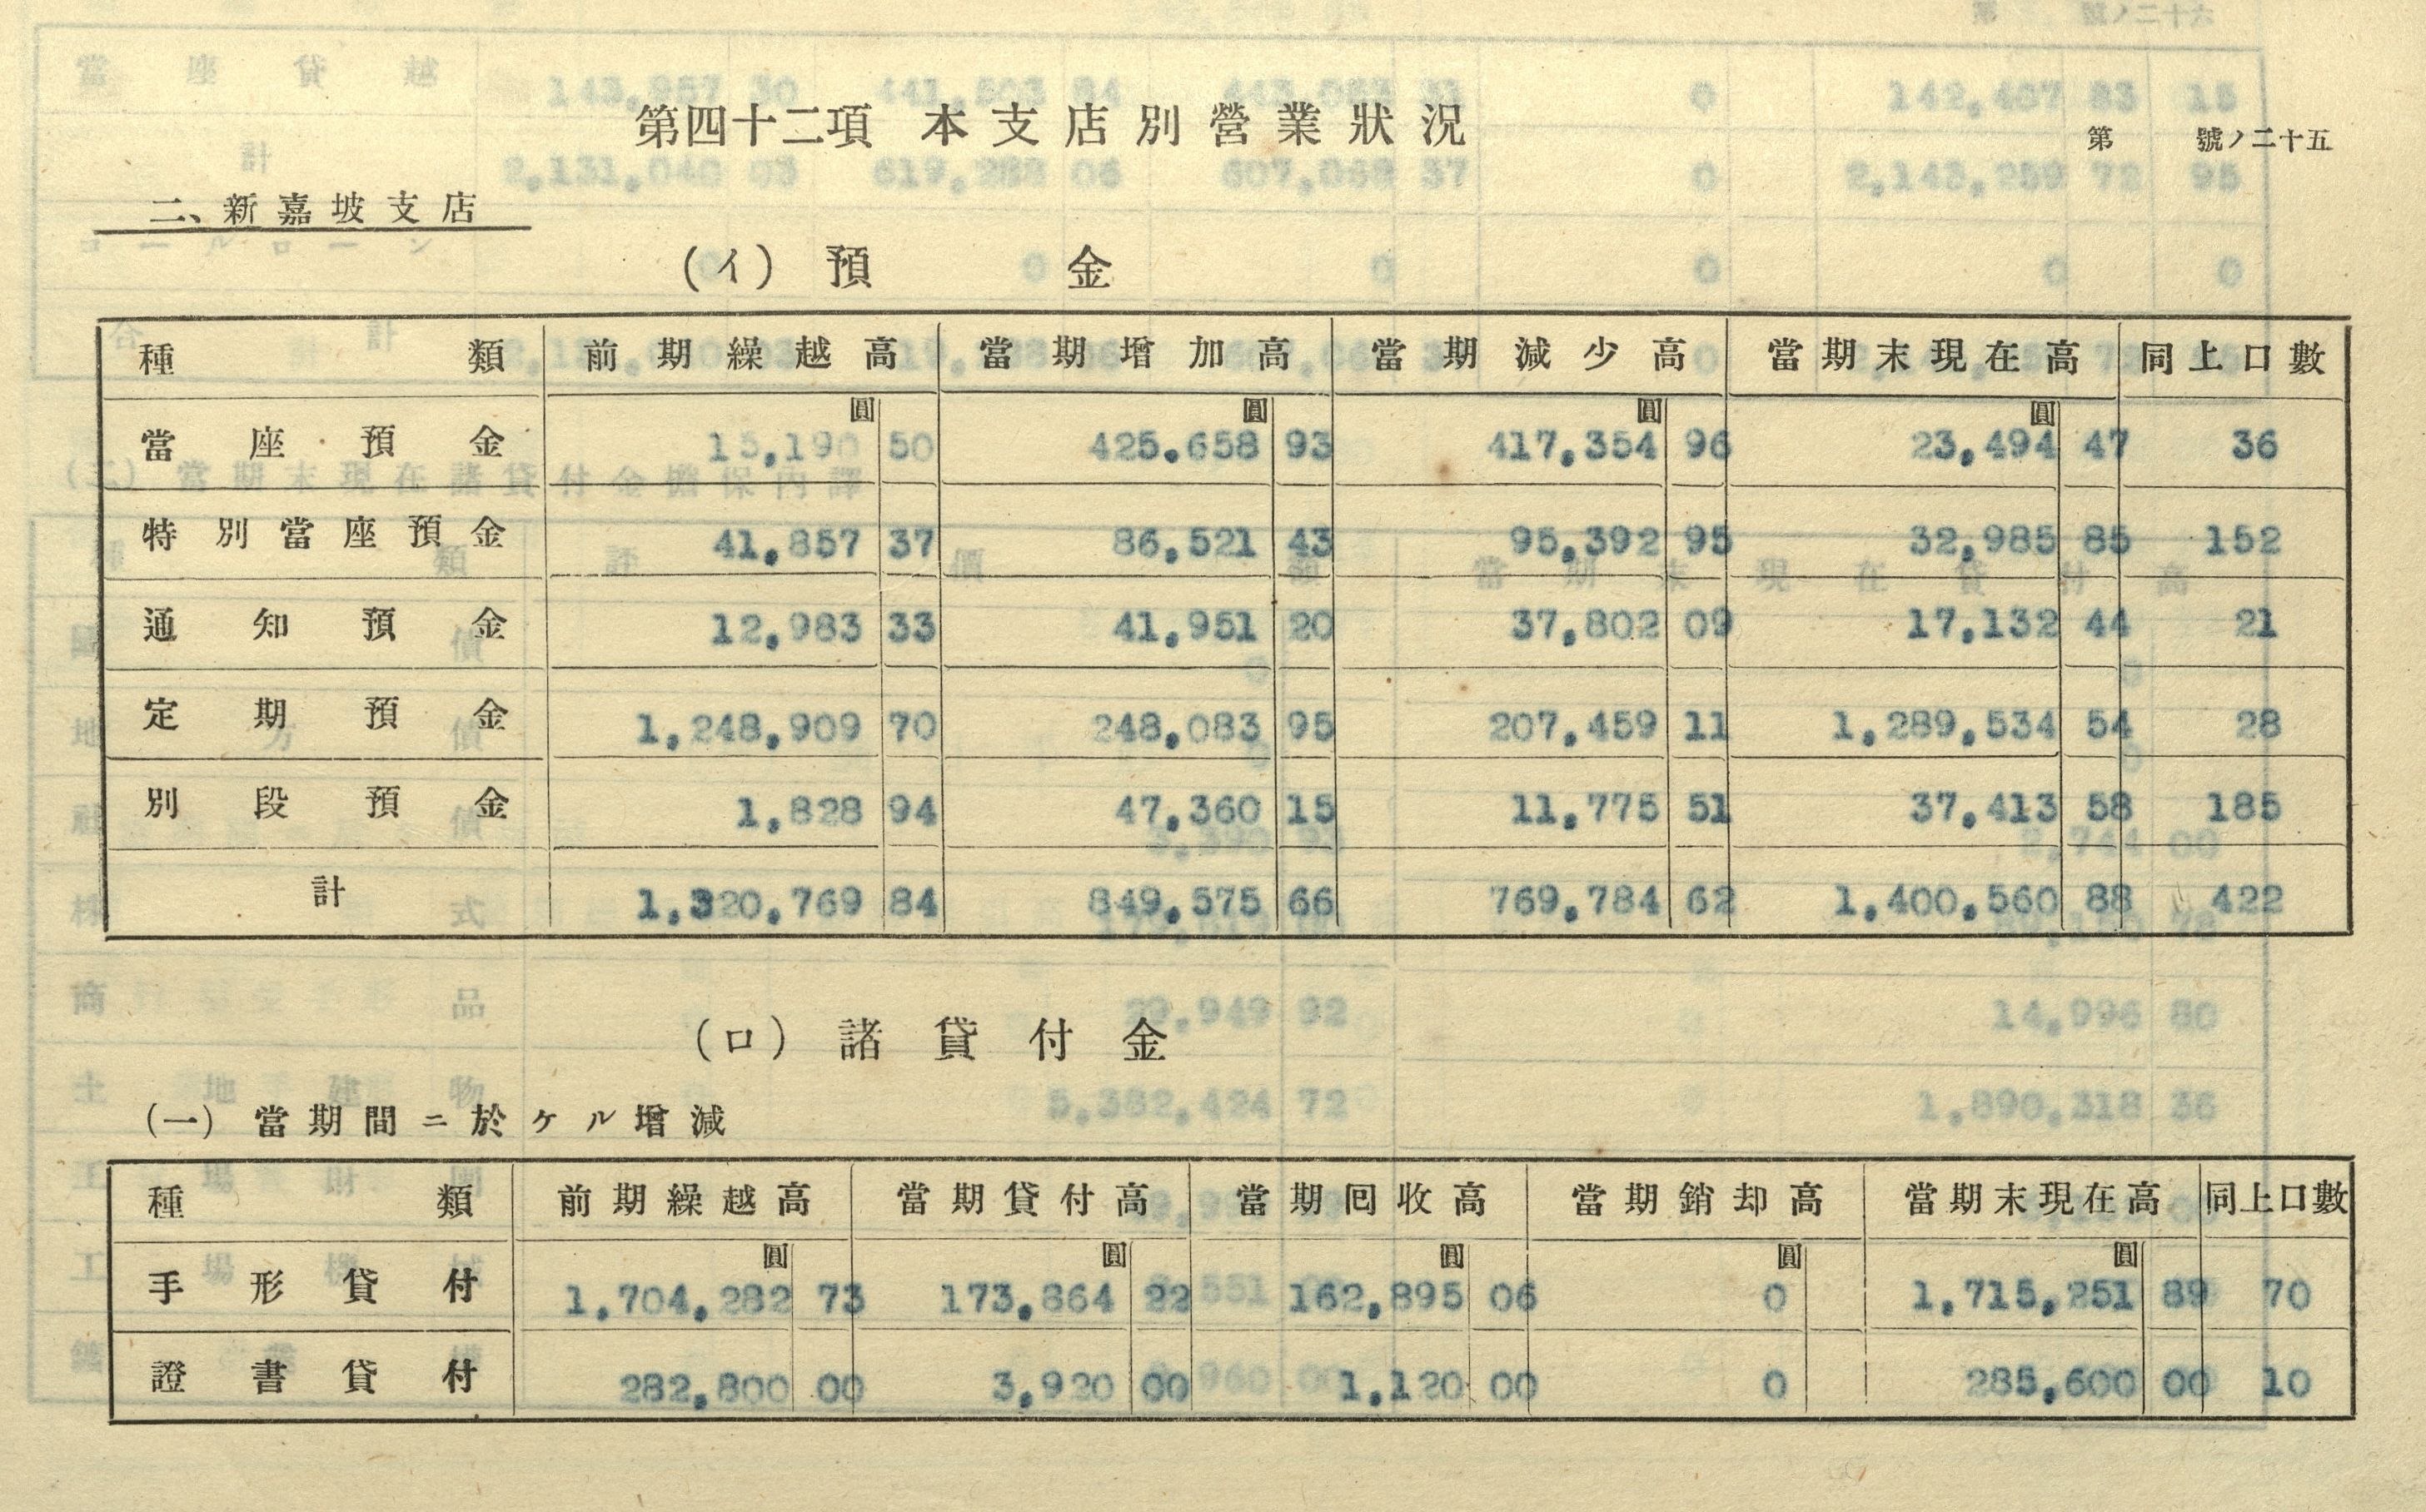 第四十二項 本支店別營業狀況
第 號ノ二十五
二、新嘉坡支店
(イ) 預金
種類 前期繰越高 當期增加高 當期減少高 當期末現在高 同上口數
圓 圓 圓 圓
當座預金 15,190 50 425,658 93 417,354 96 23,494 47 36
特別當座預金 41,857 37 86,521 43 95,392 95 32,985 85 152
通知預金 12,983 33 41,951 20 37,802 09 17,132 44 21
定期預金 1,248,909 70 248,083 95 207,459 11 1,289,534 54 28
別段預金 1,828 94 47,360 15 11,775 51 37,413 58 185
計 1,320,769 84 849,575 66 769,784 62 1,400,560 88 422
(ロ) 諸貸付金
(一) 當期間ニ於ケル增減
種類 前期繰越高 當期貸付高 當期囘收高 當期銷却高 當期末現在高 同上口數
圓 圓 圓 圓 圓
手形貸付 1,704,282 73 173,864 22 162,895 06 0 1,715,251 89 70
證書貸付 282,800 00 3,920 00 1,120 00 0 285,600 00 10